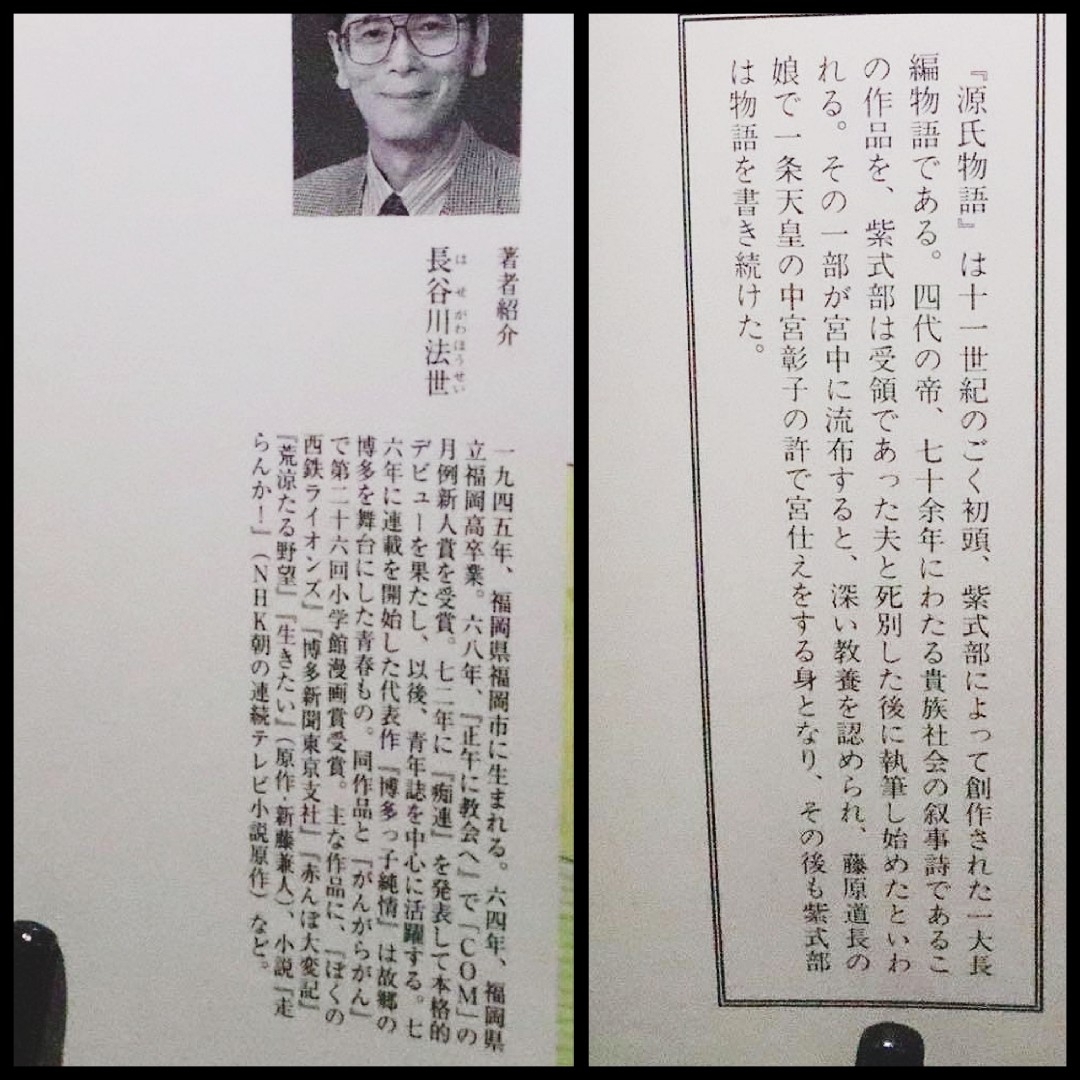 著者紹介
長谷川法世
はせがわほうせい
一九四五年、福岡県福岡市に生まれる。六四年、福岡県
立福岡高卒業。六八年、『正午に教会へ』で「COM」の
月例新人賞を受賞。七二年に『痴連』を発表して本格的
デビューを果たし、以後、青年誌を中心に活躍する。七
六年に連載を開始した代表作『博多っ子純情』は故郷の
博多を舞台にした青春もの。同作品と『がんがらがん』
で第二十六回小学館漫画賞受賞。主な作品に、『ぼくの
西鉄ライオンズ』『博多新聞東京支社』『赤んぼ大変記』
『荒涼たる野望』『生きたい』(原作・新藤兼人)、小説『走
らんか!』(NHK朝の連続テレビ小説原作)など。
『源氏物語』は十一世紀のごく初頭、紫式部によって創作された一大長
編物語である。四代の帝、七十余年にわたる貴族社会の叙事詩であるこ
の作品を、紫式部は受領であった夫と死別した後に執筆し始めたといわ
れる。その一部が宮中に流布すると、深い教養を認められ、藤原道長の
娘で一条天皇の中宮彰子の許で宮仕えをする身となり、その後も紫式部
は物語を書き続けた。